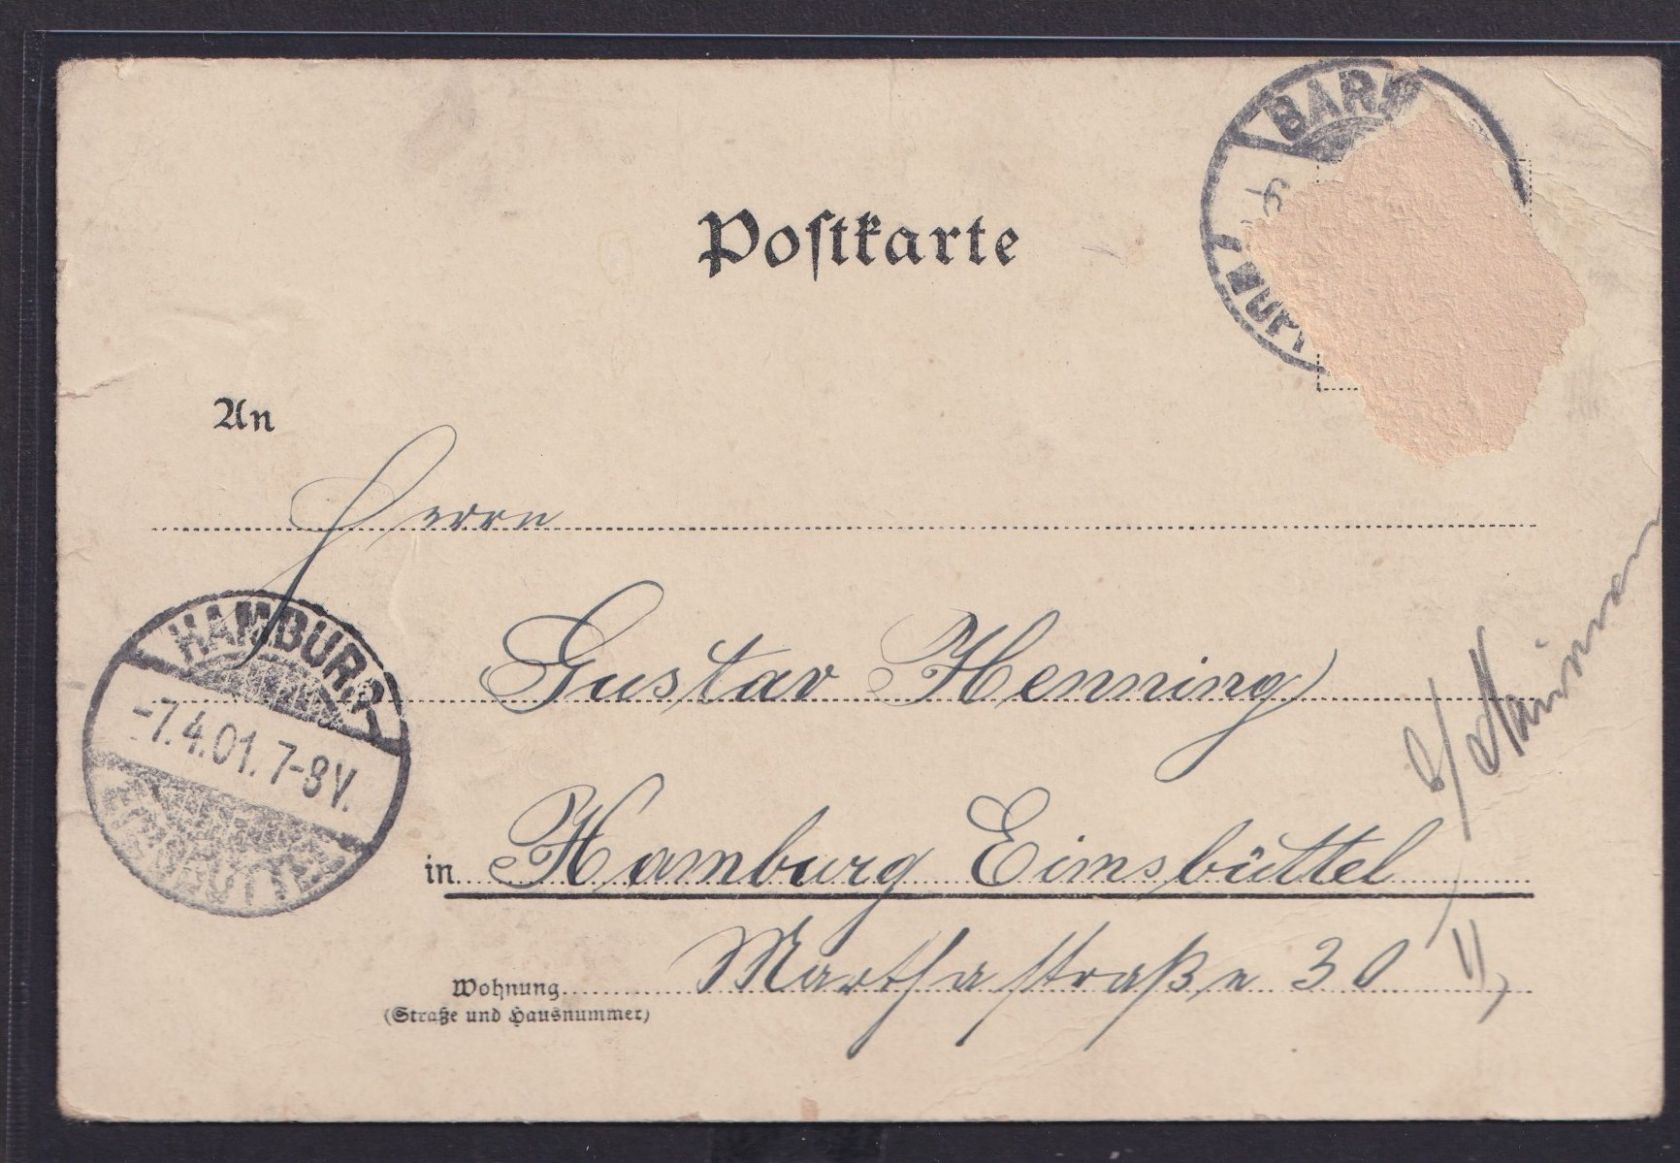 BAR
Postkarte
An
Herrn
Gustav Henning
HAMBURG
-7.4.01. 7-8V.
EIMSBÜTTEL
in Hamburg Eimsbüttel
Wohnung Marthastraße 30 II
(Straße und Hausnummer)